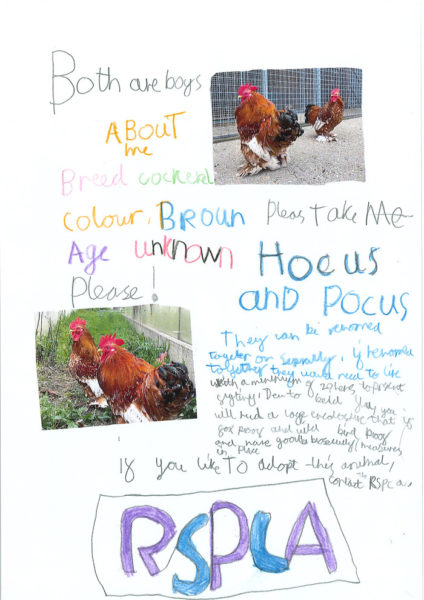 Both are boys
ABOUT
me
Breed cockerel
colour, Broun
Pleas Take Me
Age unknown
Please!
Hocus
and Pocus
They can be rehomed
together or if rehomed
together they would need to live
with a minimum of 20 hens to prevent
Due to you
will need a large enclosure that is
fox proof and wild bird proof
and have good measures
in place
if you like To adopt this animal,
contact the RSPCA
RSPCA